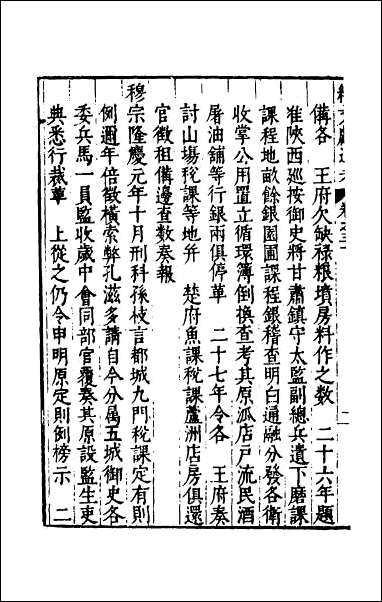 備各　王府欠缺祿粮墳房料作之数　二十六年題
准陜西廵按御史將甘肅鎮守太監副總兵遺下磨課
課程地畝餘銀園圃課程銀稽查明白通融分發各衛
收掌公用置立循環簿倒換查考其原泒店戶流民酒
屠油舖等行銀兩俱停革　二十七年令各　王府奏
討山塲稅課等地并　楚府魚課稅課蘆洲店房俱還
官徵租備邊查数奏報
穆宗隆慶元年十月刑科孫枝言都城九門稅課定有則
例邇年倍徵橫索弊孔滋多請自今分属五城御史各
委兵馬一員監收歲中會同部官覆奏其原設監生吏
典悉行裁革　上從之仍令申明原定則例榜示　二